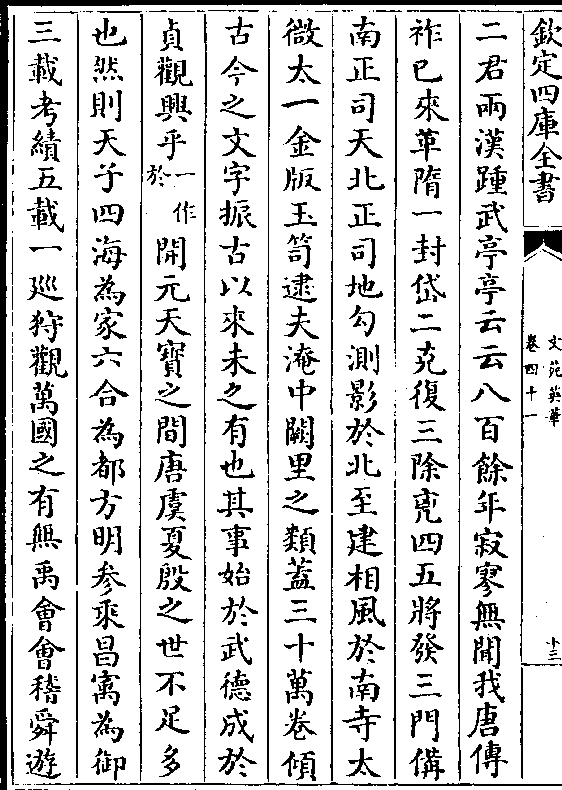 欽定四庫全書
文苑英華
卷四十一
十三
二君兩漢踵武亭亭云云八百餘年寂寥無聞我唐傳
祚已來革隋一封岱二克復三除兇四五將發三門備
南正司天北正司地勾測影於北至建相風於南寺太
微太一金版玉笥逮夫淹中闕里之類蓋三十萬卷傾
古今之文字振古以來未之有也其事始於武德成於
貞觀興乎一作於開元天寶之間唐虞夏殷之世不足多
也然則天子四海為家六合為都方明參乘昌寓為御
三載考績五載一廵狩觀萬國之有無禹會會稽舜遊